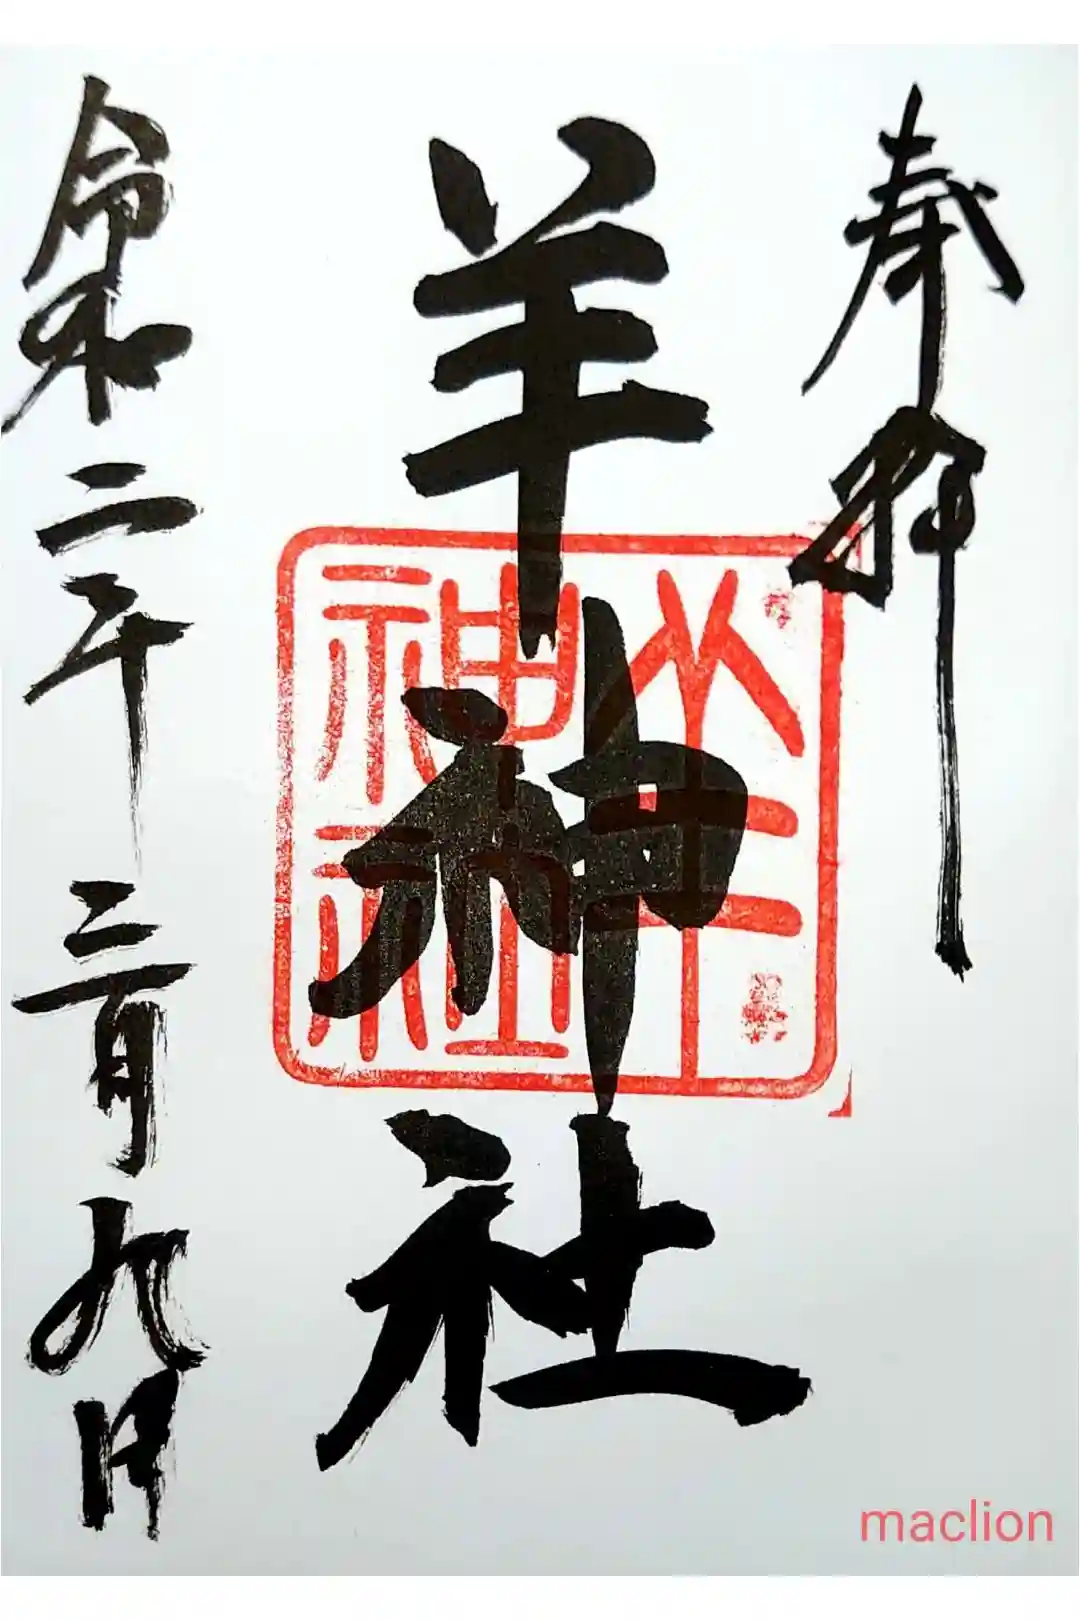 奉拝
羊神社
羊
神社
令和二年三月九日
maclion